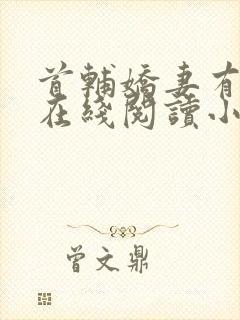 首輔嬌妻有
在綫閱讀小
曾文鼎